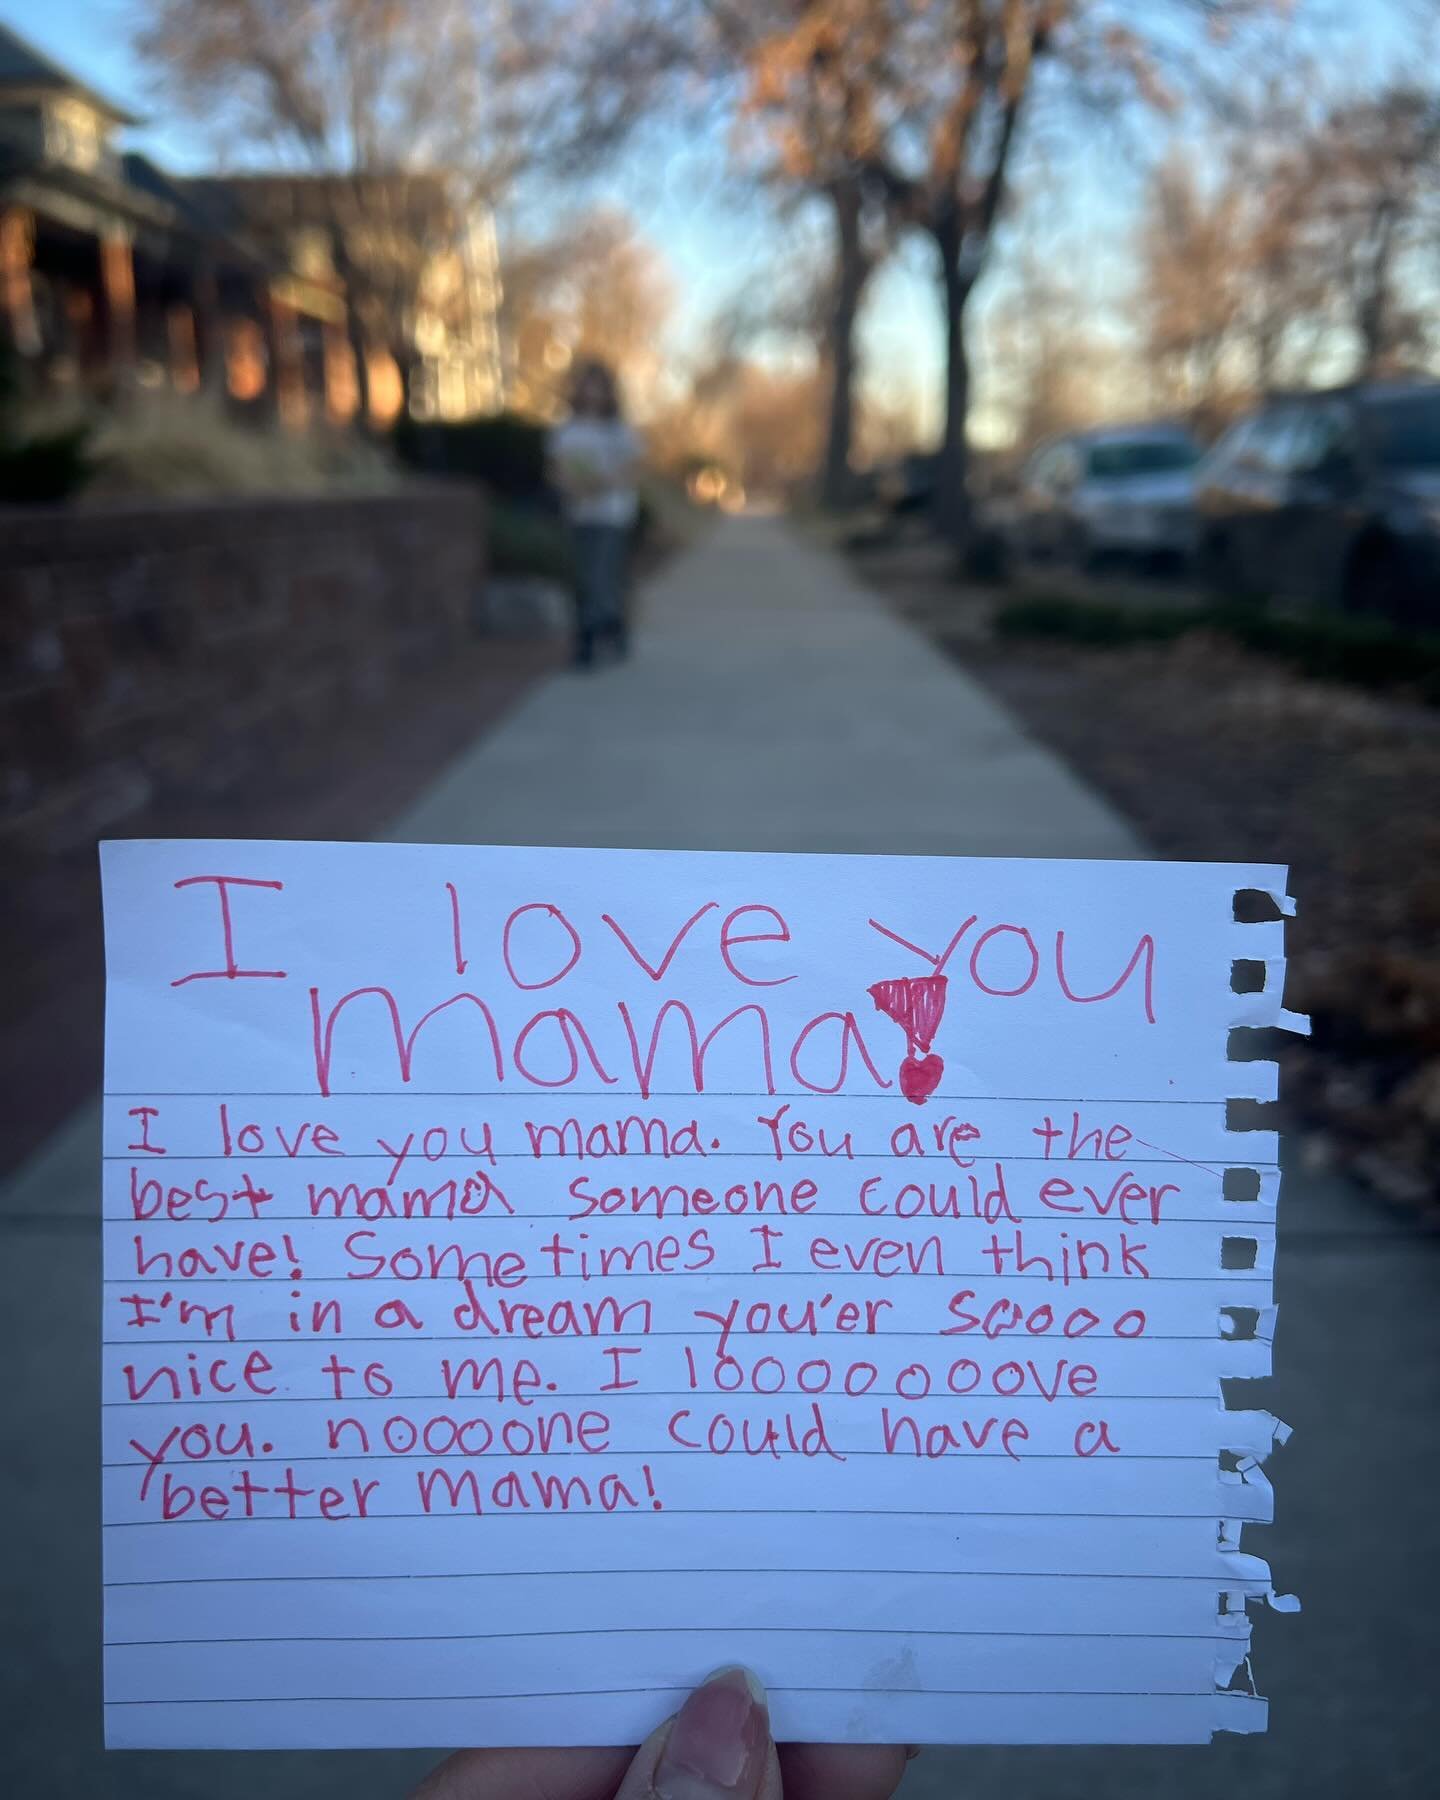 I love you
mama!
I love you mama. You are the
best mama someone could ever
have! Sometimes I even think
I'm in a dream you'er soooo
nice to me. I looooooove
you. noooone could have a
better mama!